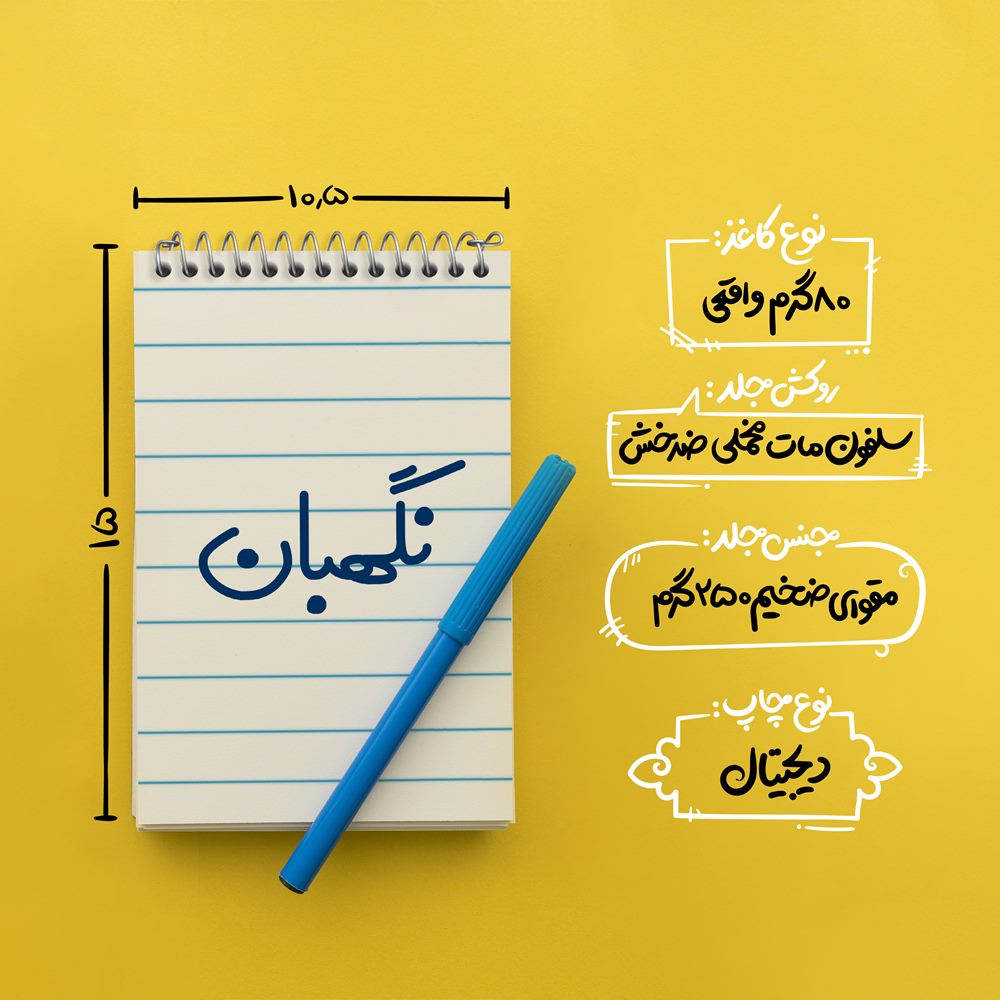 ۱۰,۵
۱۵
نگهبان
نوع کاغذ:
۸۰گرم واقعی
روکش جلد:
سلفون مات مخملی ضدخش
جنس جلد:
مقوای ضخیم ۲۵۰گرم
نوع چاپ:
دیجیتال